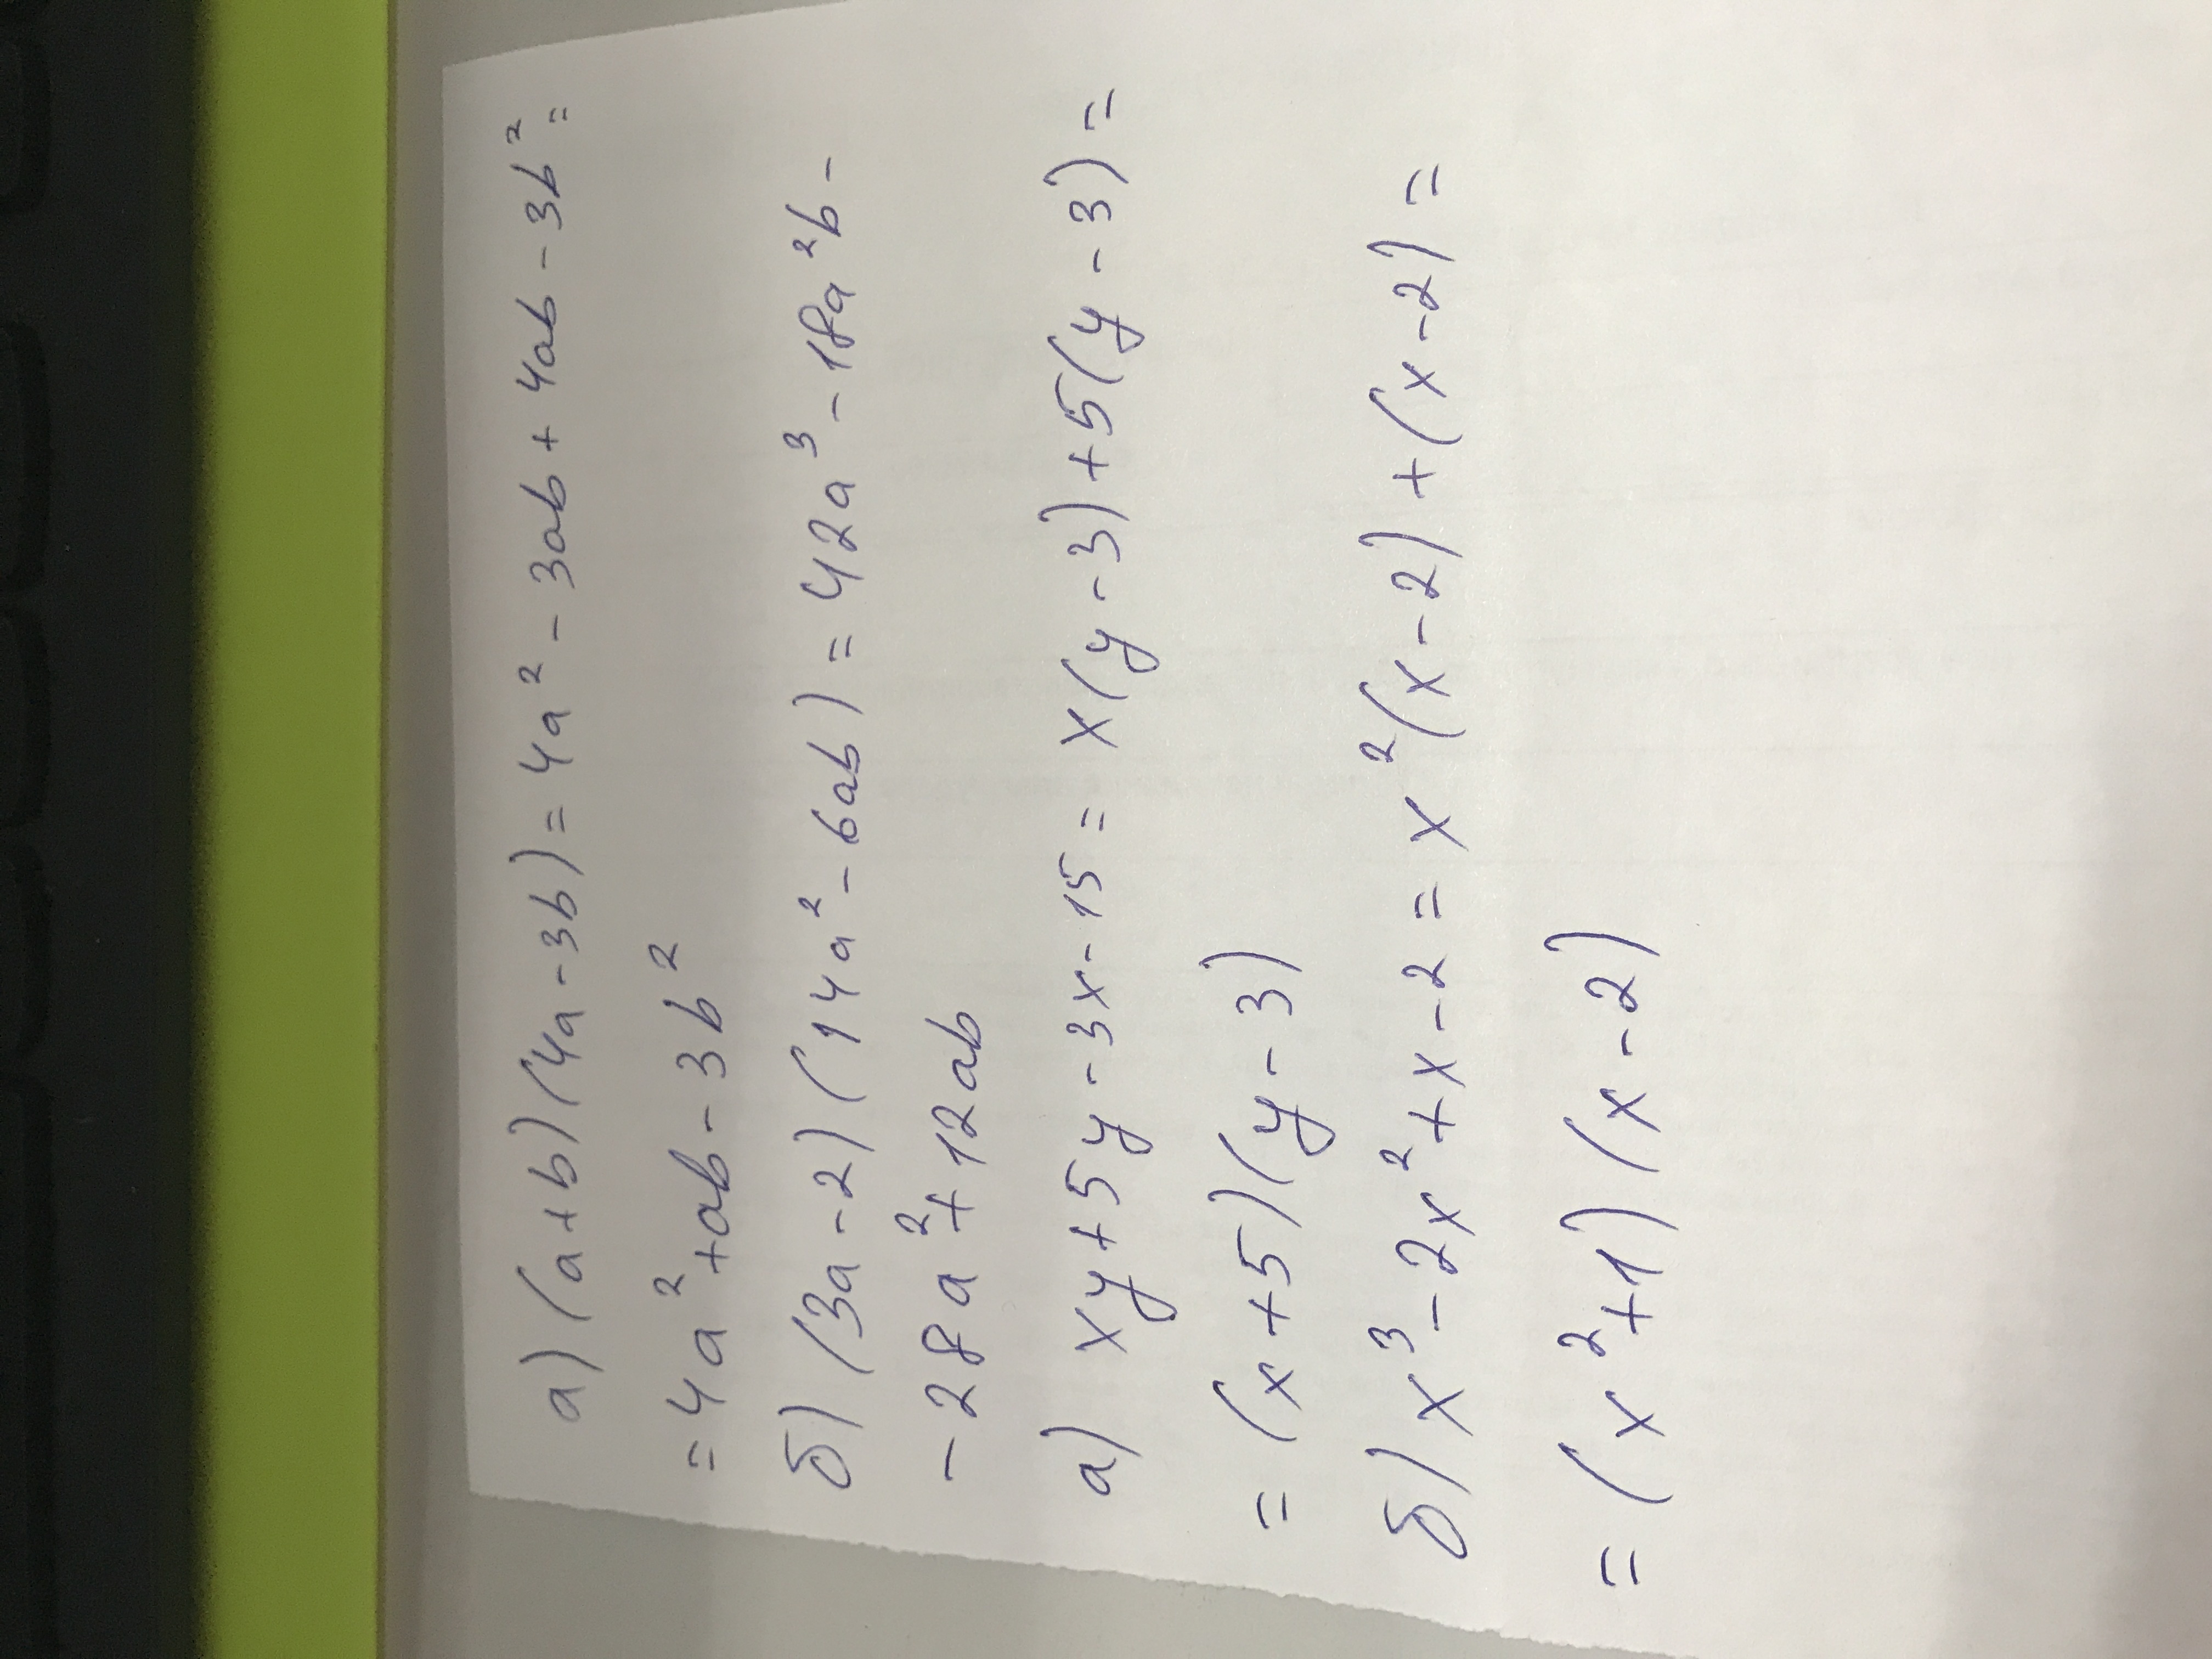 а) (a+b)(4a-3b)=4a²-3ab+4ab-3b²=
=4a²+ab-3b²
б) (3a-2)(14a²-6ab)=42a³-18a²b-
-28a²+12ab
а) xy+5y-3x-15=x(y-3)+5(y-3)=
=(x+5)(y-3)
б) x³-2x²+x-2=x²(x-2)+(x-2)=
=(x²+1)(x-2)